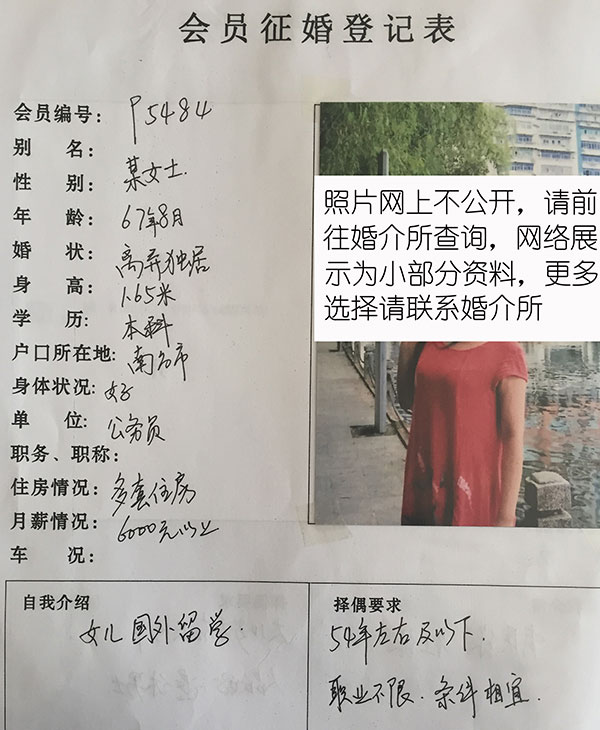 会员征婚登记表
会员编号: P5484
别 名: 某女士.
性 别:
年 龄: 67年8月
婚 状: 离异独居
身 高: 1.65米
学 历: 本科
户口所在地: 南宁市
身体状况: 好
单 位: 公务员
职务、职称:
住房情况: 多套住房
月薪情况: 6000元以上
车 况:
照片网上不公开，请前
往婚介所查询，网络展
示为小部分资料，更多
选择请联系婚介所
自我介绍
女儿国外留学.
择偶要求
54年左右及以下.
职业不限.条件相宜.